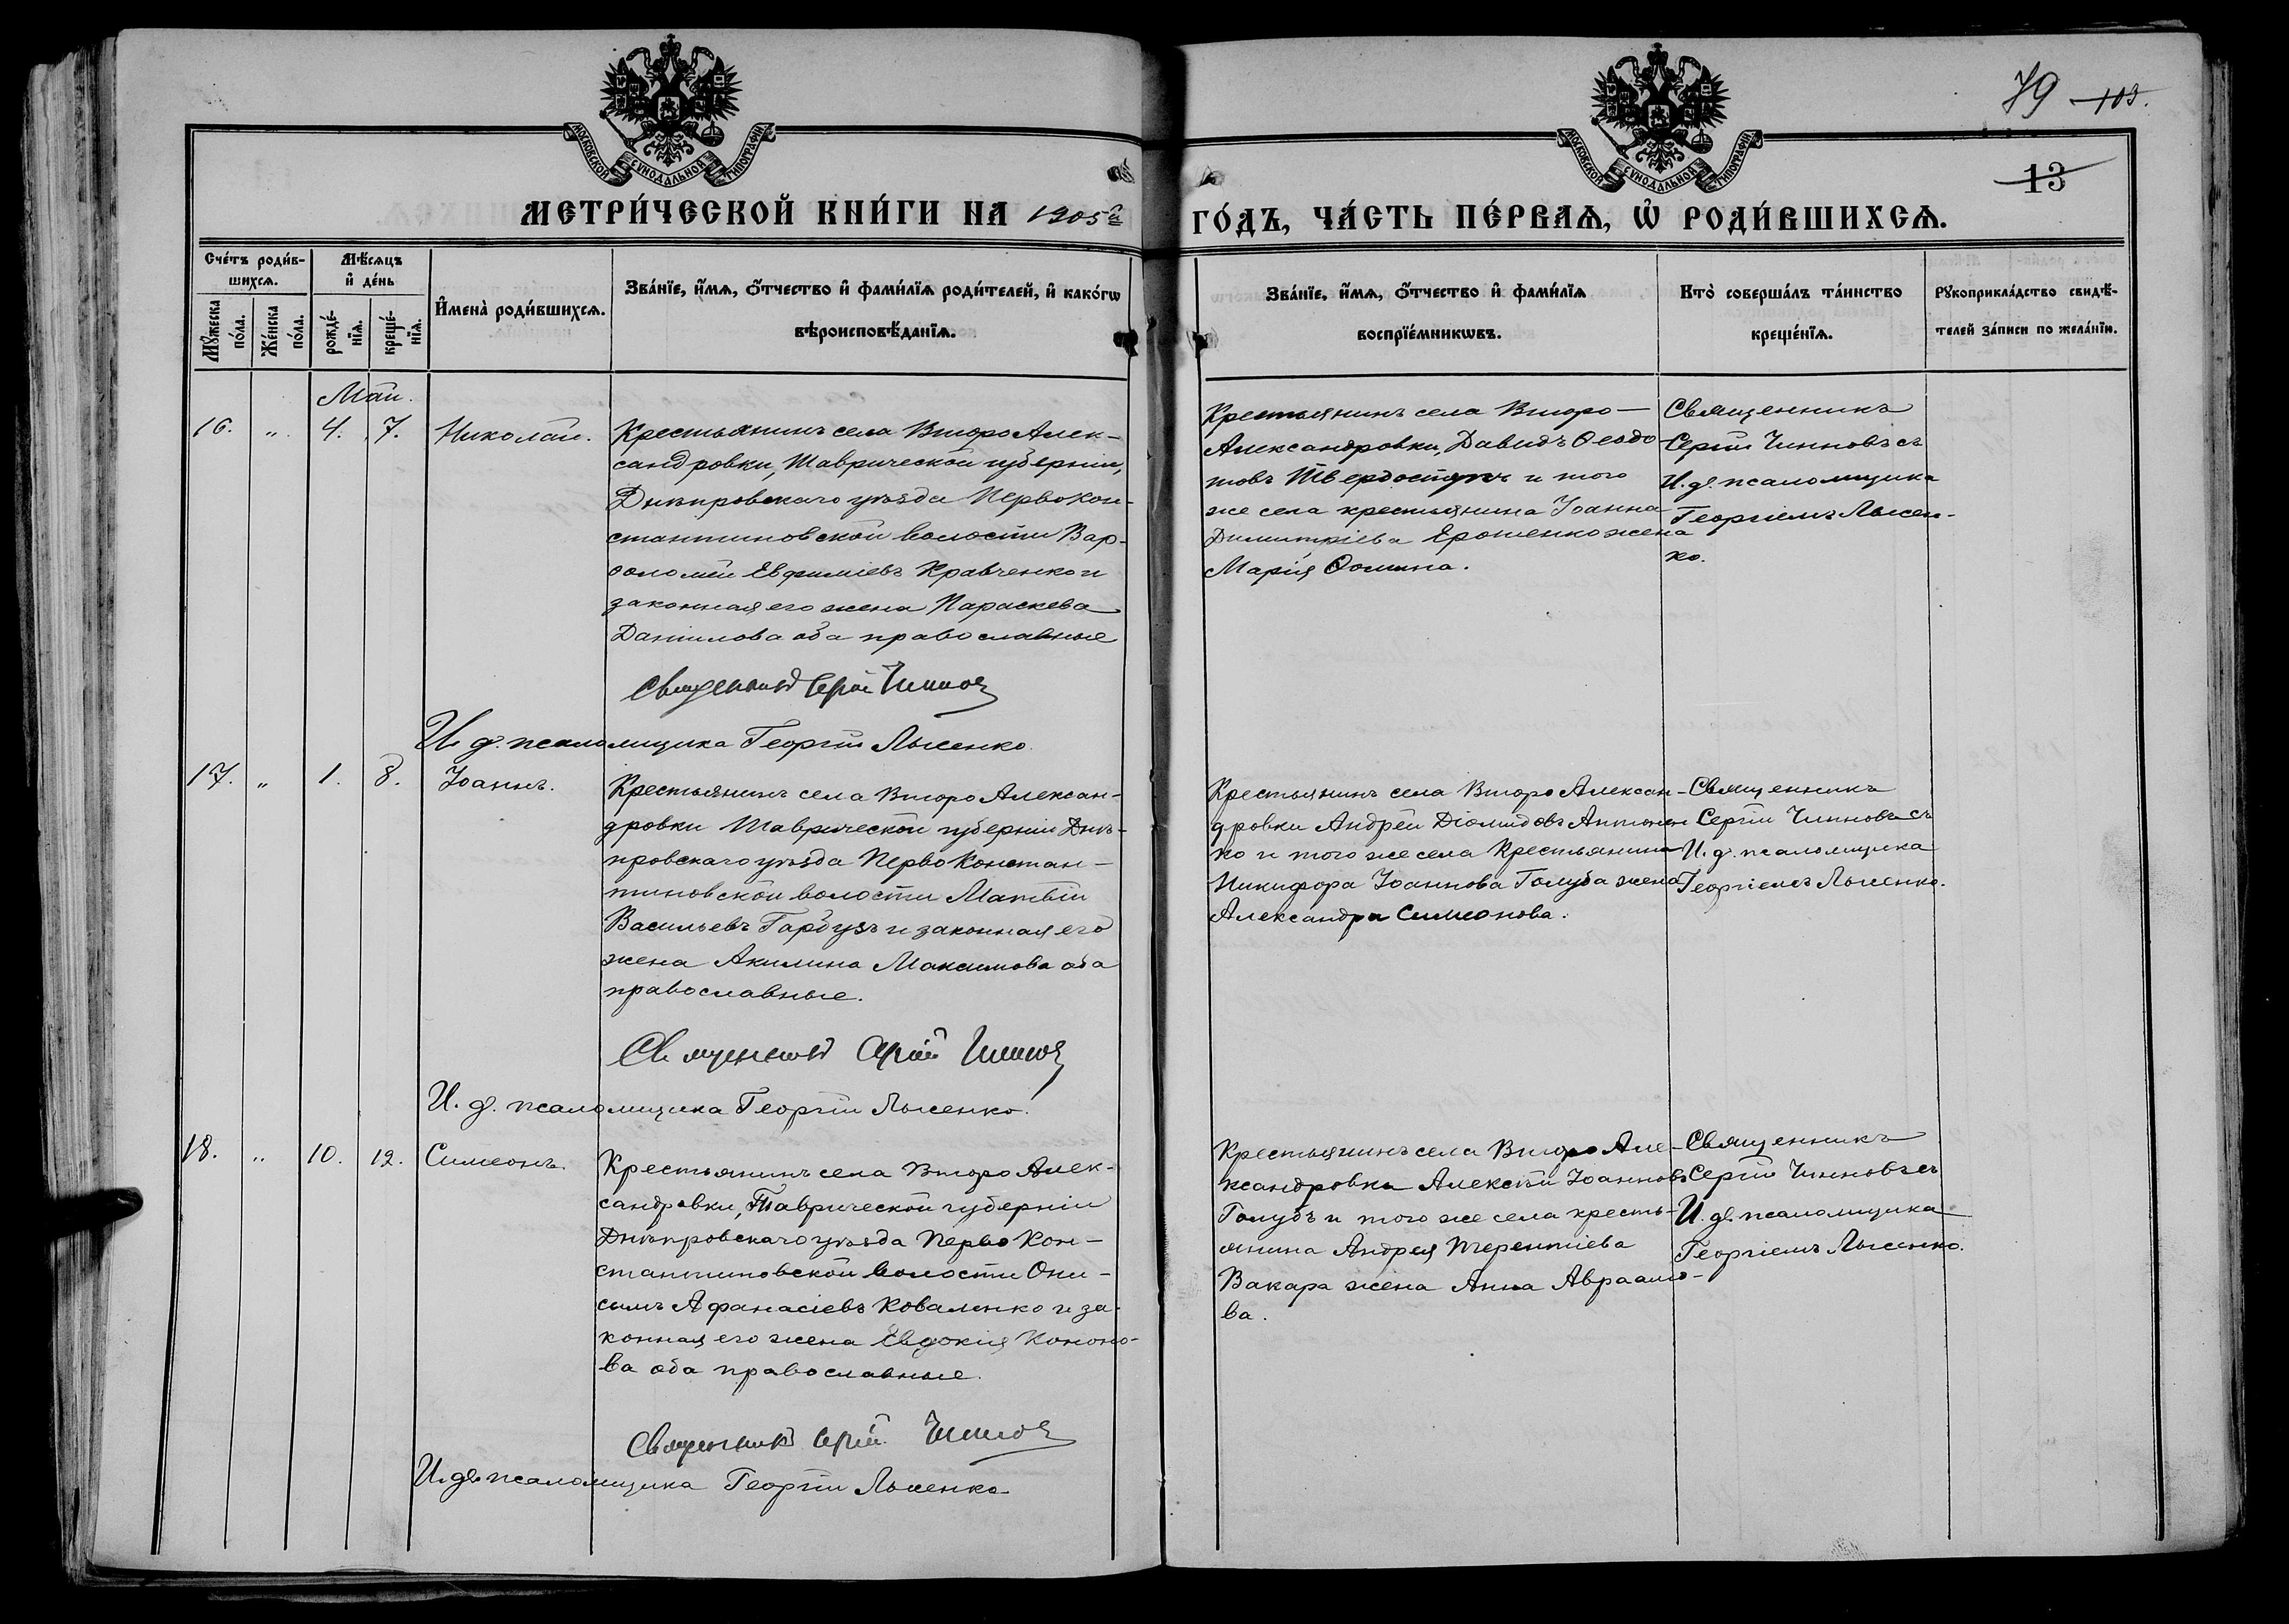 79 103.
13
МОСКОВСКОЙ СУНОДАЛЬНОЙ ТИПОГРАФІИ
МОСКОВСКОЙ СУНОДАЛЬНОЙ ТИПОГРАФІИ
МЕТРИ́ЧЕСКОЙ КНИ́ГИ НА 1905й ГО́ДЪ, ЧА́СТЬ ПЕ́РВАѦ, Ѡ҆ РОДИ́ВШИХСѦ.
Сче́тъ роди́в-
шихсѧ.
Мꙋ́жеска
по́ла.
Же́нска
по́ла.
Мѣ́сѧцъ
и҆ де́нь
рожде́-
нїѧ.
креще́-
нїѧ.
И҆мена̀ роди́вшихсѧ.
Зва́нїе, и҆́мѧ, ѻ҆́тчество и҆ фами́лїѧ роди́телей, и҆ како́гѡ
вѣроисповѣ́данїѧ.
Зва́нїе, и҆́мѧ, ѻ҆́тчество и҆ фами́лїѧ
воспрїе́мникѡвъ.
Кто̀ соверша́лъ та́инство
креще́нїѧ.
Рꙋкоприкла́дство свидѣ́-
телей за́писи по жела́нїю.
Май.
16. " 4. 7. Николай.
Крестьянинъ села ВтороАлек-
сандровки, Таврической губерніи,
Днѣпровскаго уѣзда Первокон-
стантиновской волости Вар-
ѳоломей Евфиміевъ Кравченко и
законная его жена Параскева
Даніилова оба православные
Священникъ Сергій Чиннов
И. д. псаломщика Георгій Лысенко.
Крестьянинъ села Второ-
Александровки, Давидъ Ѳеодо
товъ Твердоступъ и того
же села крестьянина Іоанна
Димитріева Ерошенко жена
Марія Ѳомина.
Священникъ
Сергій Чинновъ съ
И. д. псаломщика
Георгіемъ Лысен-
ко.
17. " 1. 8. Іоаннъ.
Крестьянинъ села ВтороАлексан-
дровки Таврической губерніи Днѣ-
провскаго уѣзда ПервоКонстан-
тиновской волости Матвій
Васильевъ Гарбузъ и законная его
жена Акилина Максимова оба
православные.
Священникъ Сергій Чиннов
И. д. псаломщика Георгій Лысенко.
Крестьянинъ села ВтороАлексан-
дровки Андрей Діомидовъ Антонен
ко и того же села Крестьянина
Никифора Іоаннова Голуба жена
Александра Симеонова.
Священникъ
Сергій Чинновъ съ
И. д. псаломщика
Георгіемъ Лысенко.
18. " 10. 12. Симеонъ.
Крестьянинъ села ВтороАлек-
сандровки, Таврической губерніи
Днѣпровскаго уѣзда ПервоКон-
стантиновской волости Они-
симъ Афанасіевъ Коваленко и за-
конная его жена Евдокія Конono-
ва оба православные.
Священникъ Сергій Чиннов
И. д. псаломщика Георгій Лысенко
Крестьянинъ села ВтороАле-
ксандровки Алексѣй Іоанновъ
Голубъ и того же села кресть-
янина Андрея Терентіева
Вакара жена Анна Авраамо-
ва.
Священникъ
Сергій Чинновъ съ
И. д. псаломщика
Георгіемъ Лысенко.